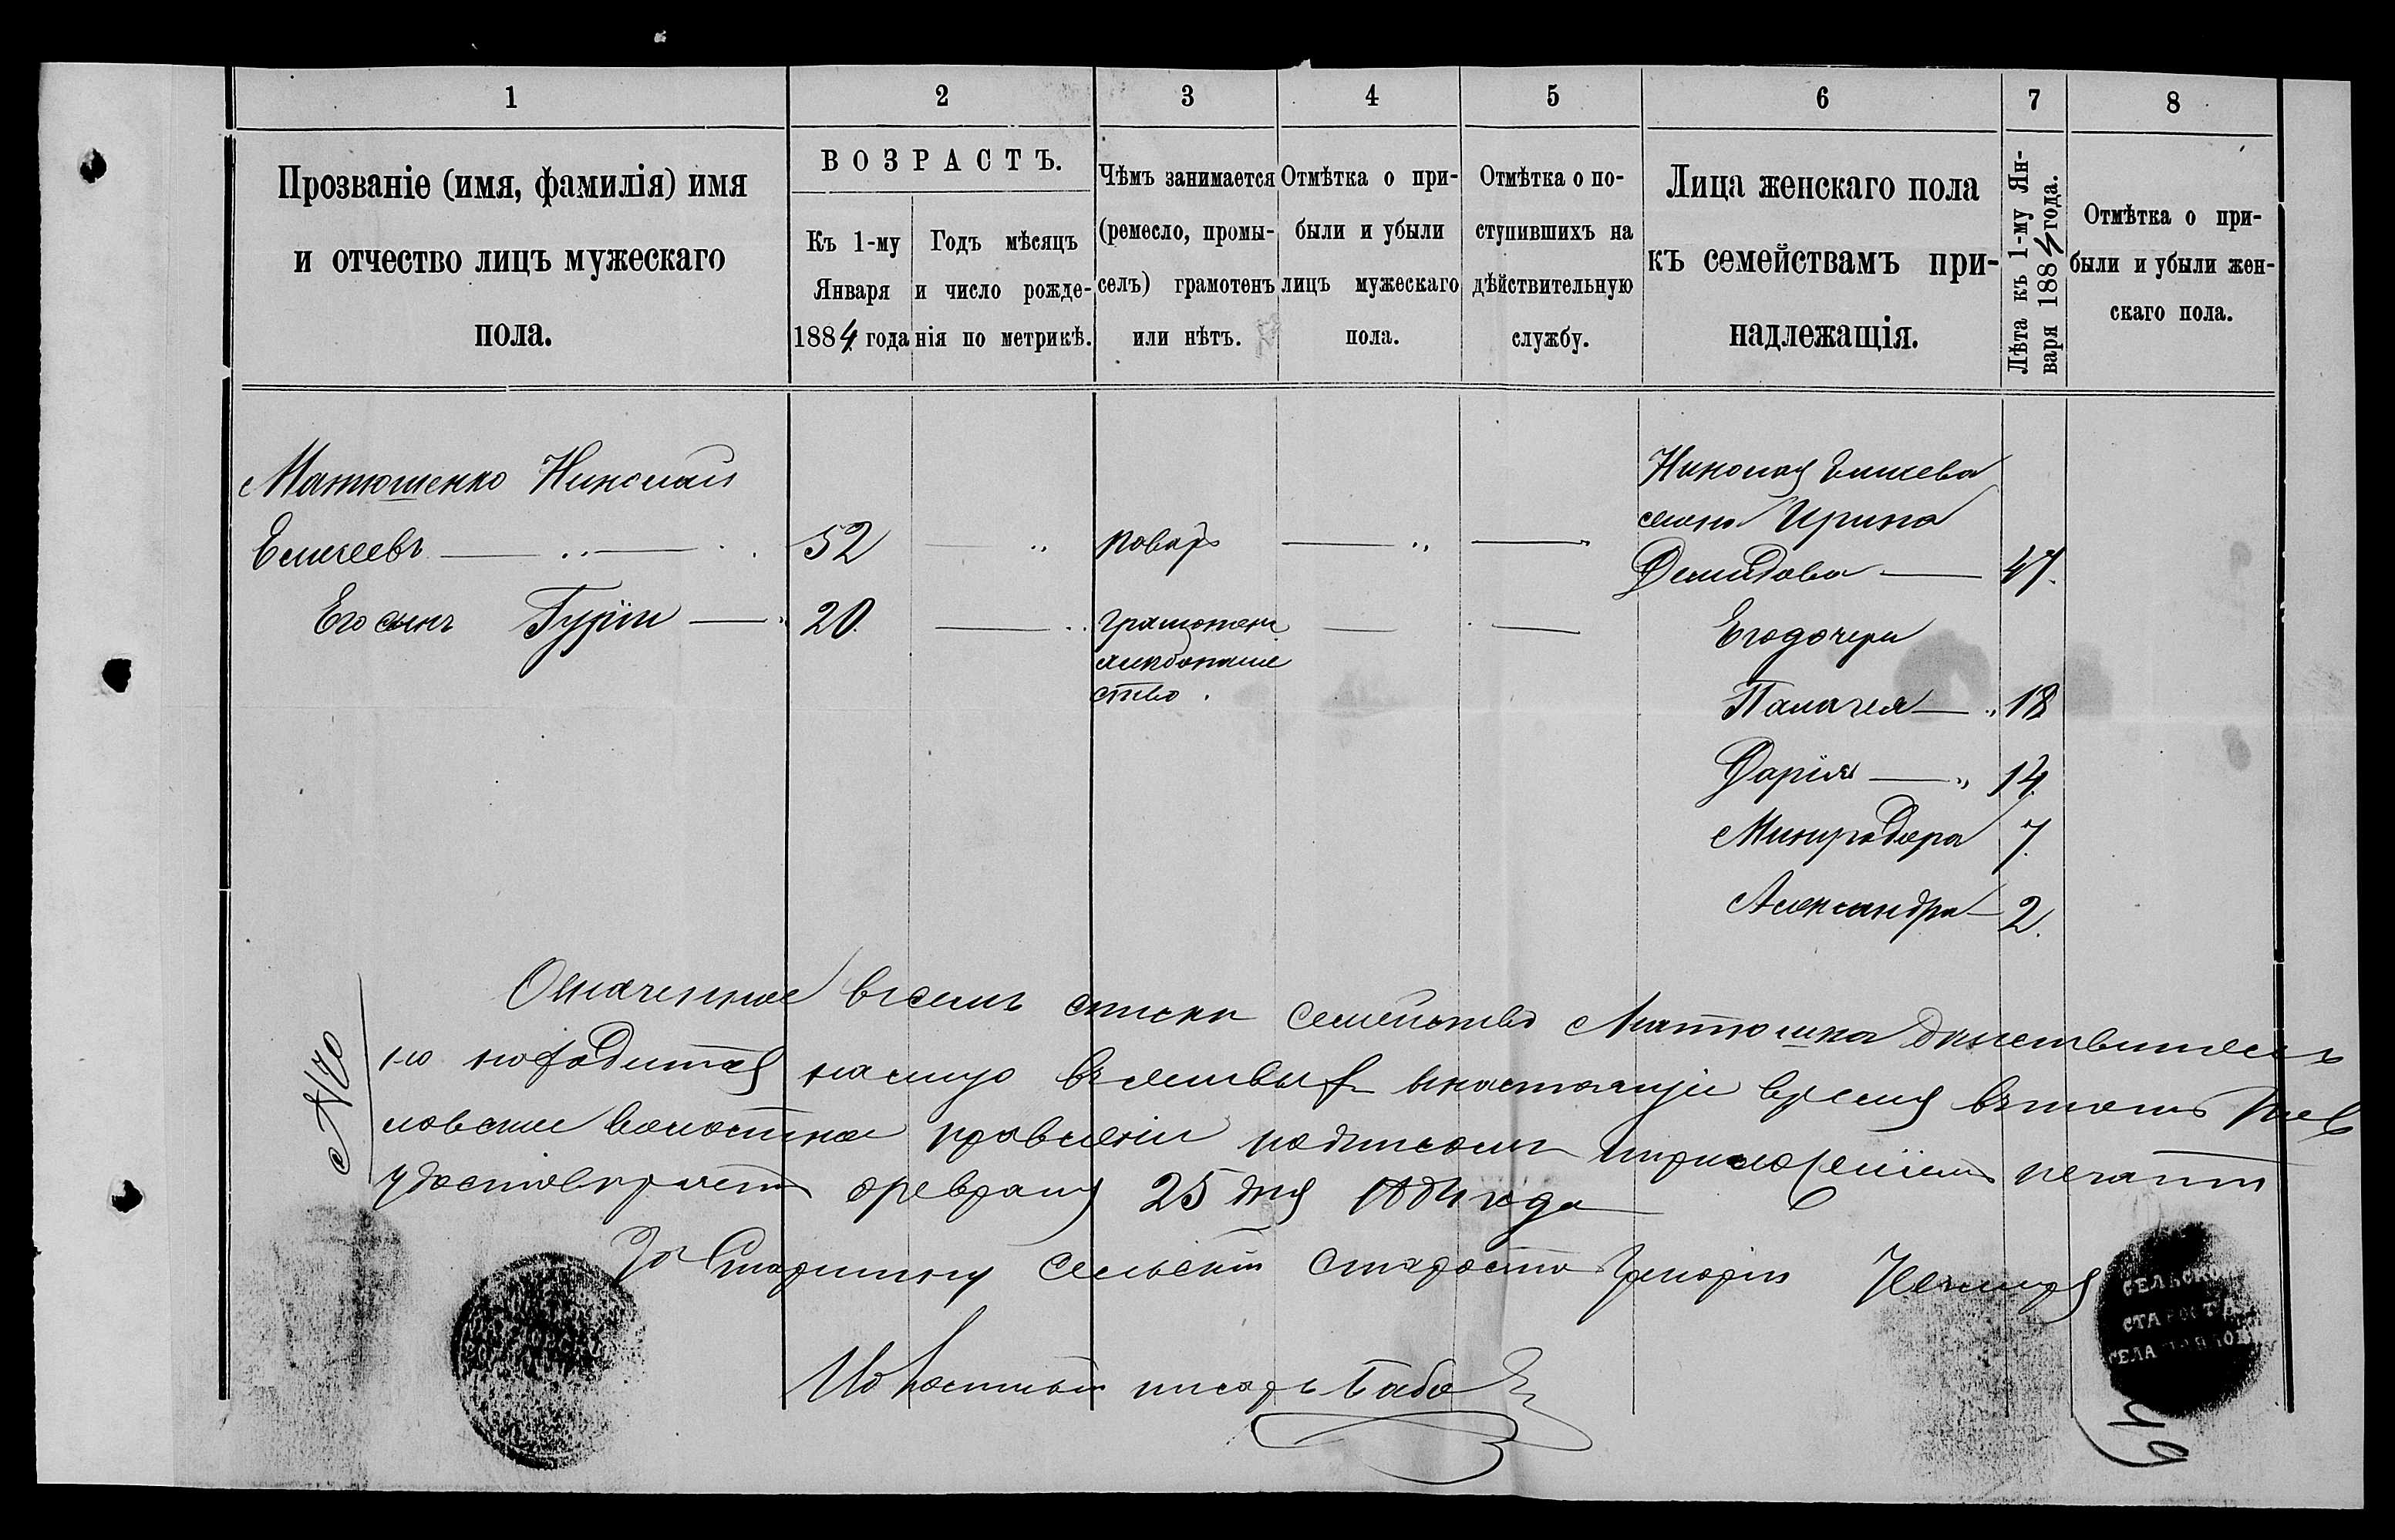 1
2
3
4
5
6
7
8
Прозваніе (имя, фамилія) имя
и отчество лицъ мужескаго
пола.
ВОЗРАСТЪ.
Къ 1-му
Января
1884 года
Годъ мѣсяцъ
и число рожде-
нія по метрикѣ.
Чѣмъ занимается
(ремесло, промы-
селъ) грамотенъ
или нѣтъ.
Отмѣтка о при-
были и убыли
лицъ мужескаго
пола.
Отмѣтка о по-
ступившихъ на
дѣйствительную
службу.
Лица женскаго пола
къ семействамъ при-
надлежащія.
Лѣта къ 1-му Ян-
варя 1884 года.
Отмѣтка о при-
были и убыли жен-
скаго пола.
Матюшенко Николай
Елисеевъ 52 поваръ
Его сынъ Гурій 20.
грамотенъ
хлебопаше
ство.
Николая Елисеева
жена Ирина
Демидова 47.
Его дочери
Палагея 18
Дарія 14
Минуродора 7.
Александра 2.
Означенное всемъ списки семейство Матюшка дѣиствитель
но находится на лицо въ живыхъ внастоящее время въ томъ
волостное правленіе подписомъ и приложеніемъ печати
удостовѣряетъ февраля 25 дня 1884 года
№
За Старшину сельскій староста Григорій
Волостный писарь Баба
СЕЛЬСК
СТАРОСТА
СЕЛА
49